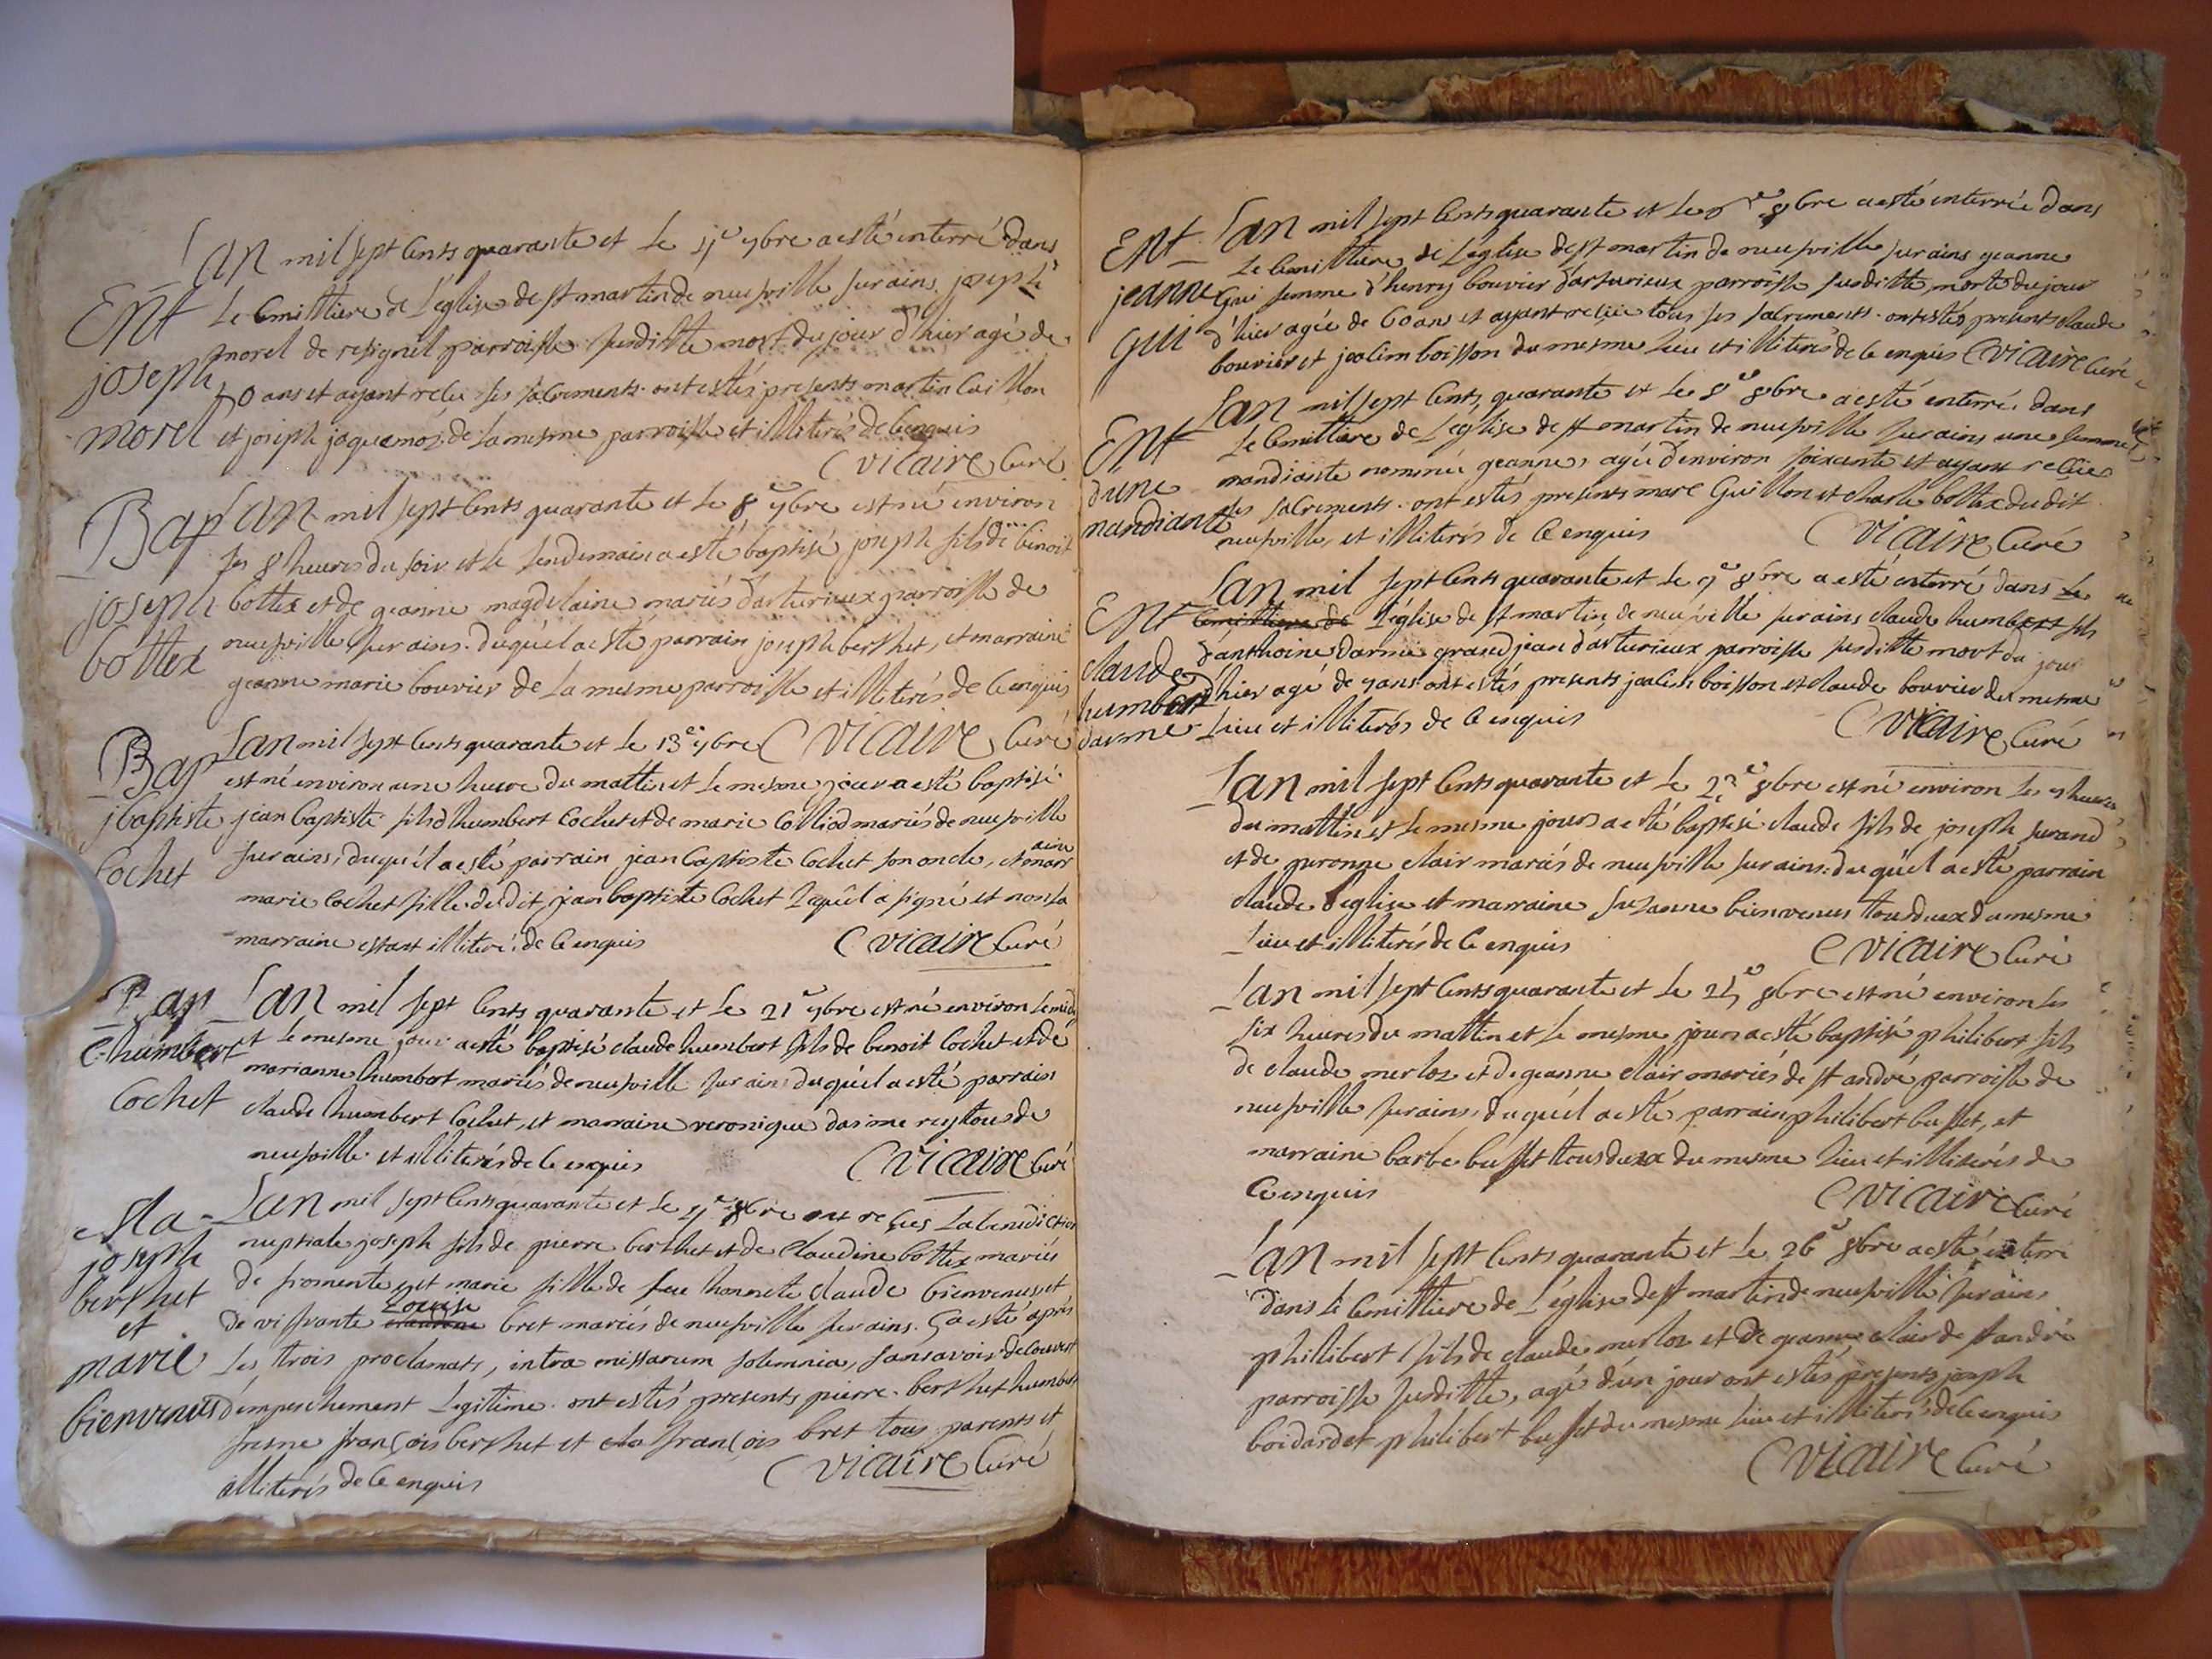 Lan mil sept cents quarante et le 4e 7bre a esté interré dans
Ent le cemittiere de l'église de st martin de neufville sur ains joseph
joseph morel de resignel parroisse susditte mort du jour d'hier agé de
morel 50 ans et ayant reçu ses sacrements. ont estés présents martin Cuillon
et joseph jaquemos de la mesme parroisse et illiterés de ce enquis
C vicaire Curé
Bap Lan mil sept cents quarante et le 8e 7bre est né environ
les 8 heures du soir et le lendemain a esté baptisé joseph fils de benoit
joseph bottex et de geanne magdelaine mariés d'arturieux parroisse de
bottex neufville sur ains. duquel a esté parrain joseph berthet, et marraine
geanne marie bouvier de la mesme parroisse et illiterés de ce enquis
Bap Lan mil sept cents quarante et le 13e 7bre C vicaire Curé
est né environ une heure du mattin et le mesme jour a esté baptisé
jbaptiste jean baptiste fils d'humbert Cochet et de marie Colliod mariés de neufville
Cochet sur ains, duquel a esté parrain jean baptiste Cochet son oncle, et marraine
marie Cochet fille dudit jean baptiste Cochet lequel a signé et non la
marraine estant illiteré de ce enquis C vicaire Curé
Bap Lan mil sept cents quarante et le 21e 7bre est né environ le midi
C. humbert et le mesme jour a esté baptisé claude humbert fils de benoit Cochet et de
marianne humbert mariés de neufville sur ains duquel a esté parrain
Cochet claude humbert Cochet, et marraine veronique darme rey tous de
neufville et illiterés de ce enquis C vicaire Curé
Ma - Lan mil sept cents quarante et le 4e 8bre ont reçues la benediction
joseph nuptiale joseph fils de pierre berthet et de Claudine bottex mariés
berthet de fromente, et marie fille de feu honnete claude bienvenus et
et de vissrante Louise bret mariés de neufville sur ains. ça esté après
marie les trois proclamats, intra missarum solemnia, sans avoir decouvert
bienvenus d'empeschement legitime. ont estés presents pierre berthet humbert
fresne françois berthet et cla françois bret tous parents et
illiterés de ce enquis C vicaire Curé
Ent Lan mil sept cents quarante et le 8bre a esté interrée dans
le cemittiere de l'église de st martin de neufville sur ains geanne
jeanne Gui femme d'henry bouvier d'arturieux parroisse susditte, morte du jour
Gui d'hier agée de 60 ans et ayant reçue tous ses sacrements. ont estés présents claude
bouvier et joachim boisson du mesme lieu et illiterés de ce enquis C vicaire Curé
Lan mil sept cents quarante et le 8e 8bre a esté enterré dans
Ent le cemittiere de l'église de st martin de neufville sur ains une femme
dune mandiante nommée geanne, agée d'environ soixante et ayant reçue
mandiante ses sacrements. ont estés présents marc Guillon et charle bottex dudit
neufville, et illiterés de ce enquis C vicaire Curé
Lan mil sept cents quarante et le 9e 8bre a esté enterré dans le
Ent cemittiere de l'église de st martin de neufville sur ains claude humbert fils
claude d'anthoine darme grand jean d'arturieux parroisse susditte mort du jour
humbert d'hier agé de 7 ans ont estés présents joachim boisson et claude bouvier du mesme
darme lieu et illiterés de ce enquis C vicaire Curé
Lan mil sept cents quarante et le 22e 8bre est né environ les 9 heures
du mattin et le mesme jour a esté baptisé claude fils de joseph jurand
et de peronne clair mariés de neufville sur ains. duquel a esté parrain
claude l'eglise et marraine suzanne bienvenus tous deux du mesme
lieu et illiterés de ce enquis C vicaire Curé
Lan mil sept cents quarante et le 25e 8bre est né environ les
six heures du mattin et le mesme jour a esté baptisé philibert fils
de claude merloz et de geanne clair mariés de st andré parroisse de
neufville sur ains, duquel a esté parrain philibert busset, et
marraine barbe busset tous deux du mesme lieu et illiterés de
ce enquis C vicaire Curé
Lan mil sept cents quarante et le 26e 8bre a esté interré
dans le cemittiere de l'église de st martin de neufville sur ains
phillibert fils de claude merloz et de geanne clair de st andré
parroisse susditte, agé d'un jour ont estés presents joseph
boidard et philibert busset du mesme lieu et illiterés de ce enquis
C vicaire Curé